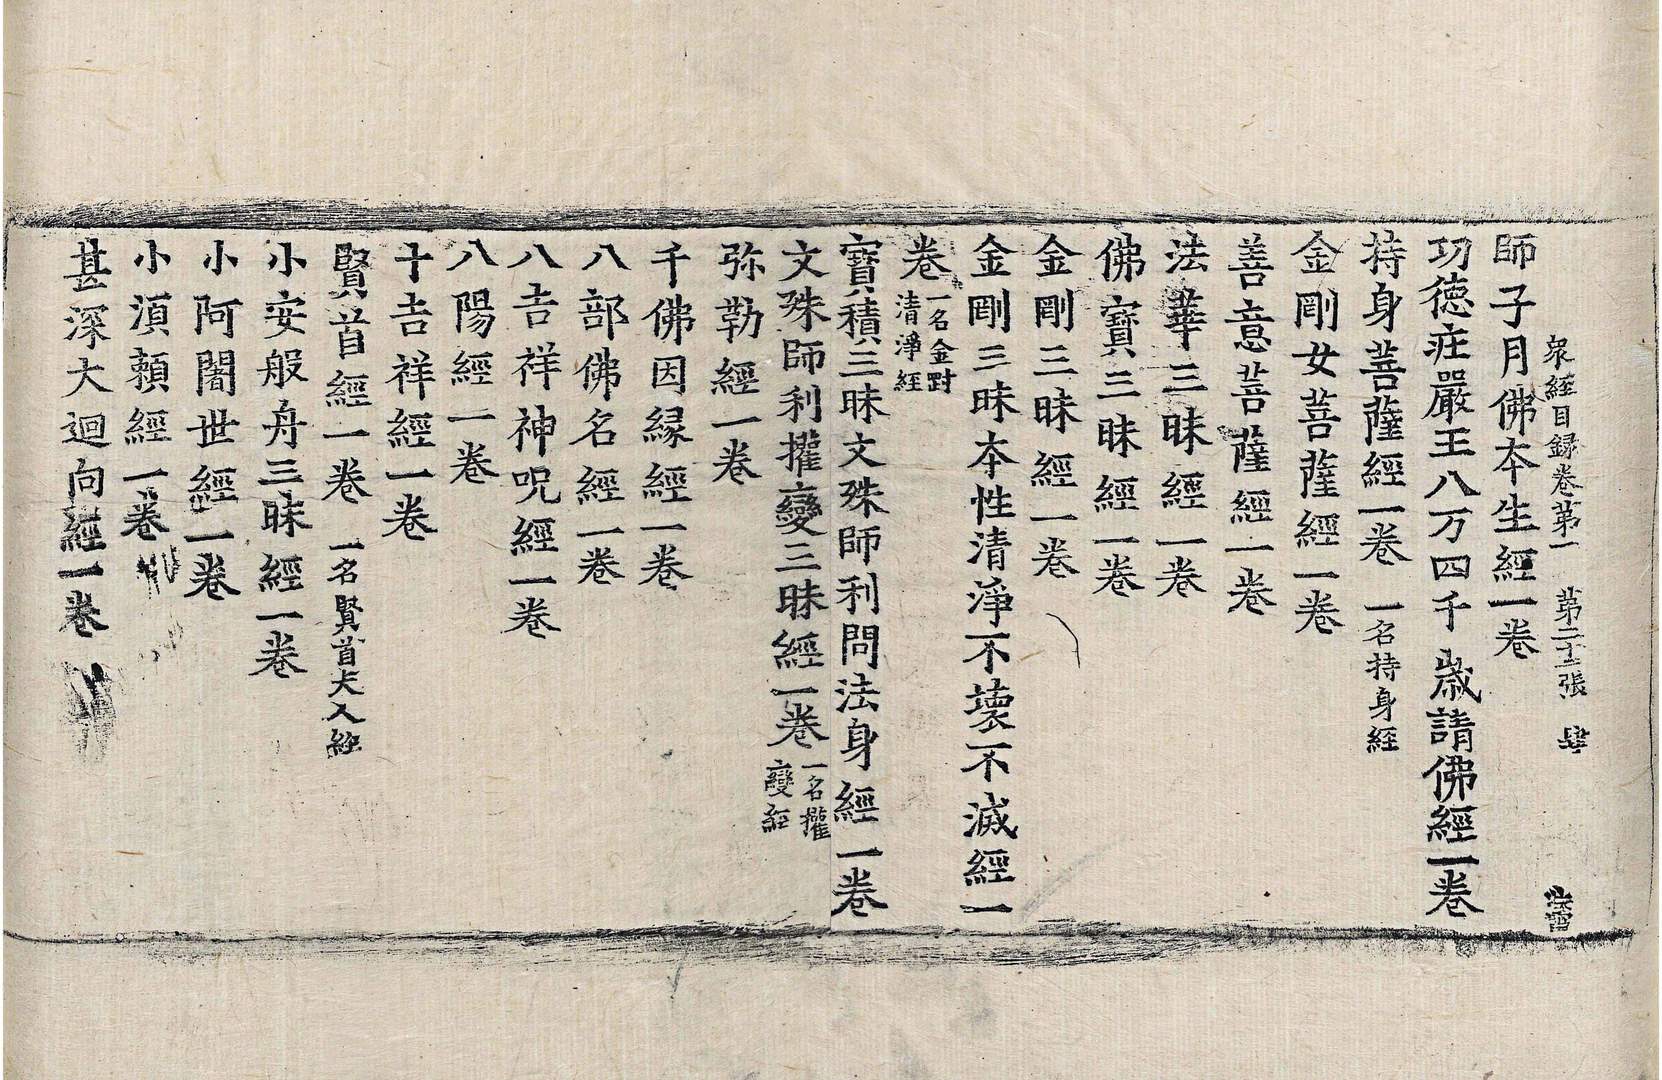 衆經目録卷第一 第二十二張 肆
師子月佛本生經一卷
功德莊嚴王八万四千歲請佛經一卷
持身菩薩經一卷 一名持身經
金剛女菩薩經一卷
善意菩薩經一卷
法華三昧經一卷
佛寶三昧經一卷
金剛三昧經一卷
金剛三昧本性清淨不壞不滅經一
卷 一名金對
清淨經
寶積三昧文殊師利問法身經一卷
文殊師利㩲變三昧經一卷 一名㩲
變經
弥勒經一卷
千佛因緣經一卷
八部佛名經一卷
八吉祥神呪經一卷
八陽經一卷
十吉祥經一卷
賢首經一卷 一名賢首夫人經
小安般舟三昧經一卷
小阿闍世經一卷
小湏賴經一卷
甚深大迴向經一卷